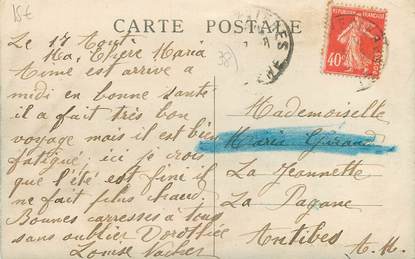 15€
CARTE POSTALE
38
REPUBLIQUE FRANCAISE
40c
Le 17 Aout
Ma Chère Maria
Aimé est arrivé a
midi en bonne santé
il a fait très bon
voyage mais il est bien
fatigué, ici je crois
que l'été est fini il
ne fait plus chaud
Bonnes caresses à tous
sans oublier Dorothée
Louise
Mademoiselle
Maria
La Jeannette
La Pagane
Antibes
A. M.